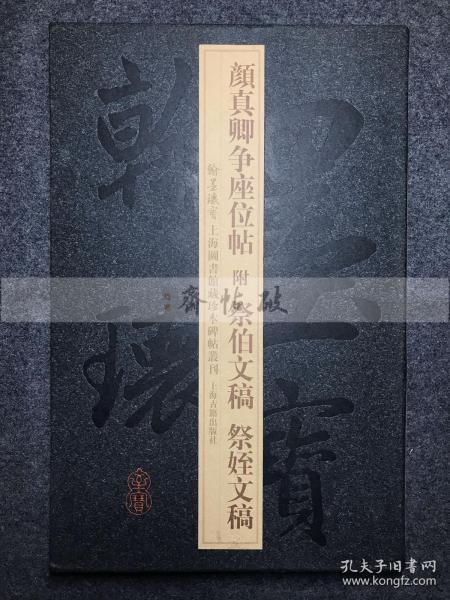 顔真卿争座位帖 附 祭伯文稿 祭姪文稿
翰墨瓌寶 上海圖書館藏珍本碑帖叢刊 上海古籍出版社
翰墨瓌寶
破帖齋
孔夫子旧书网
www.kongfz.com